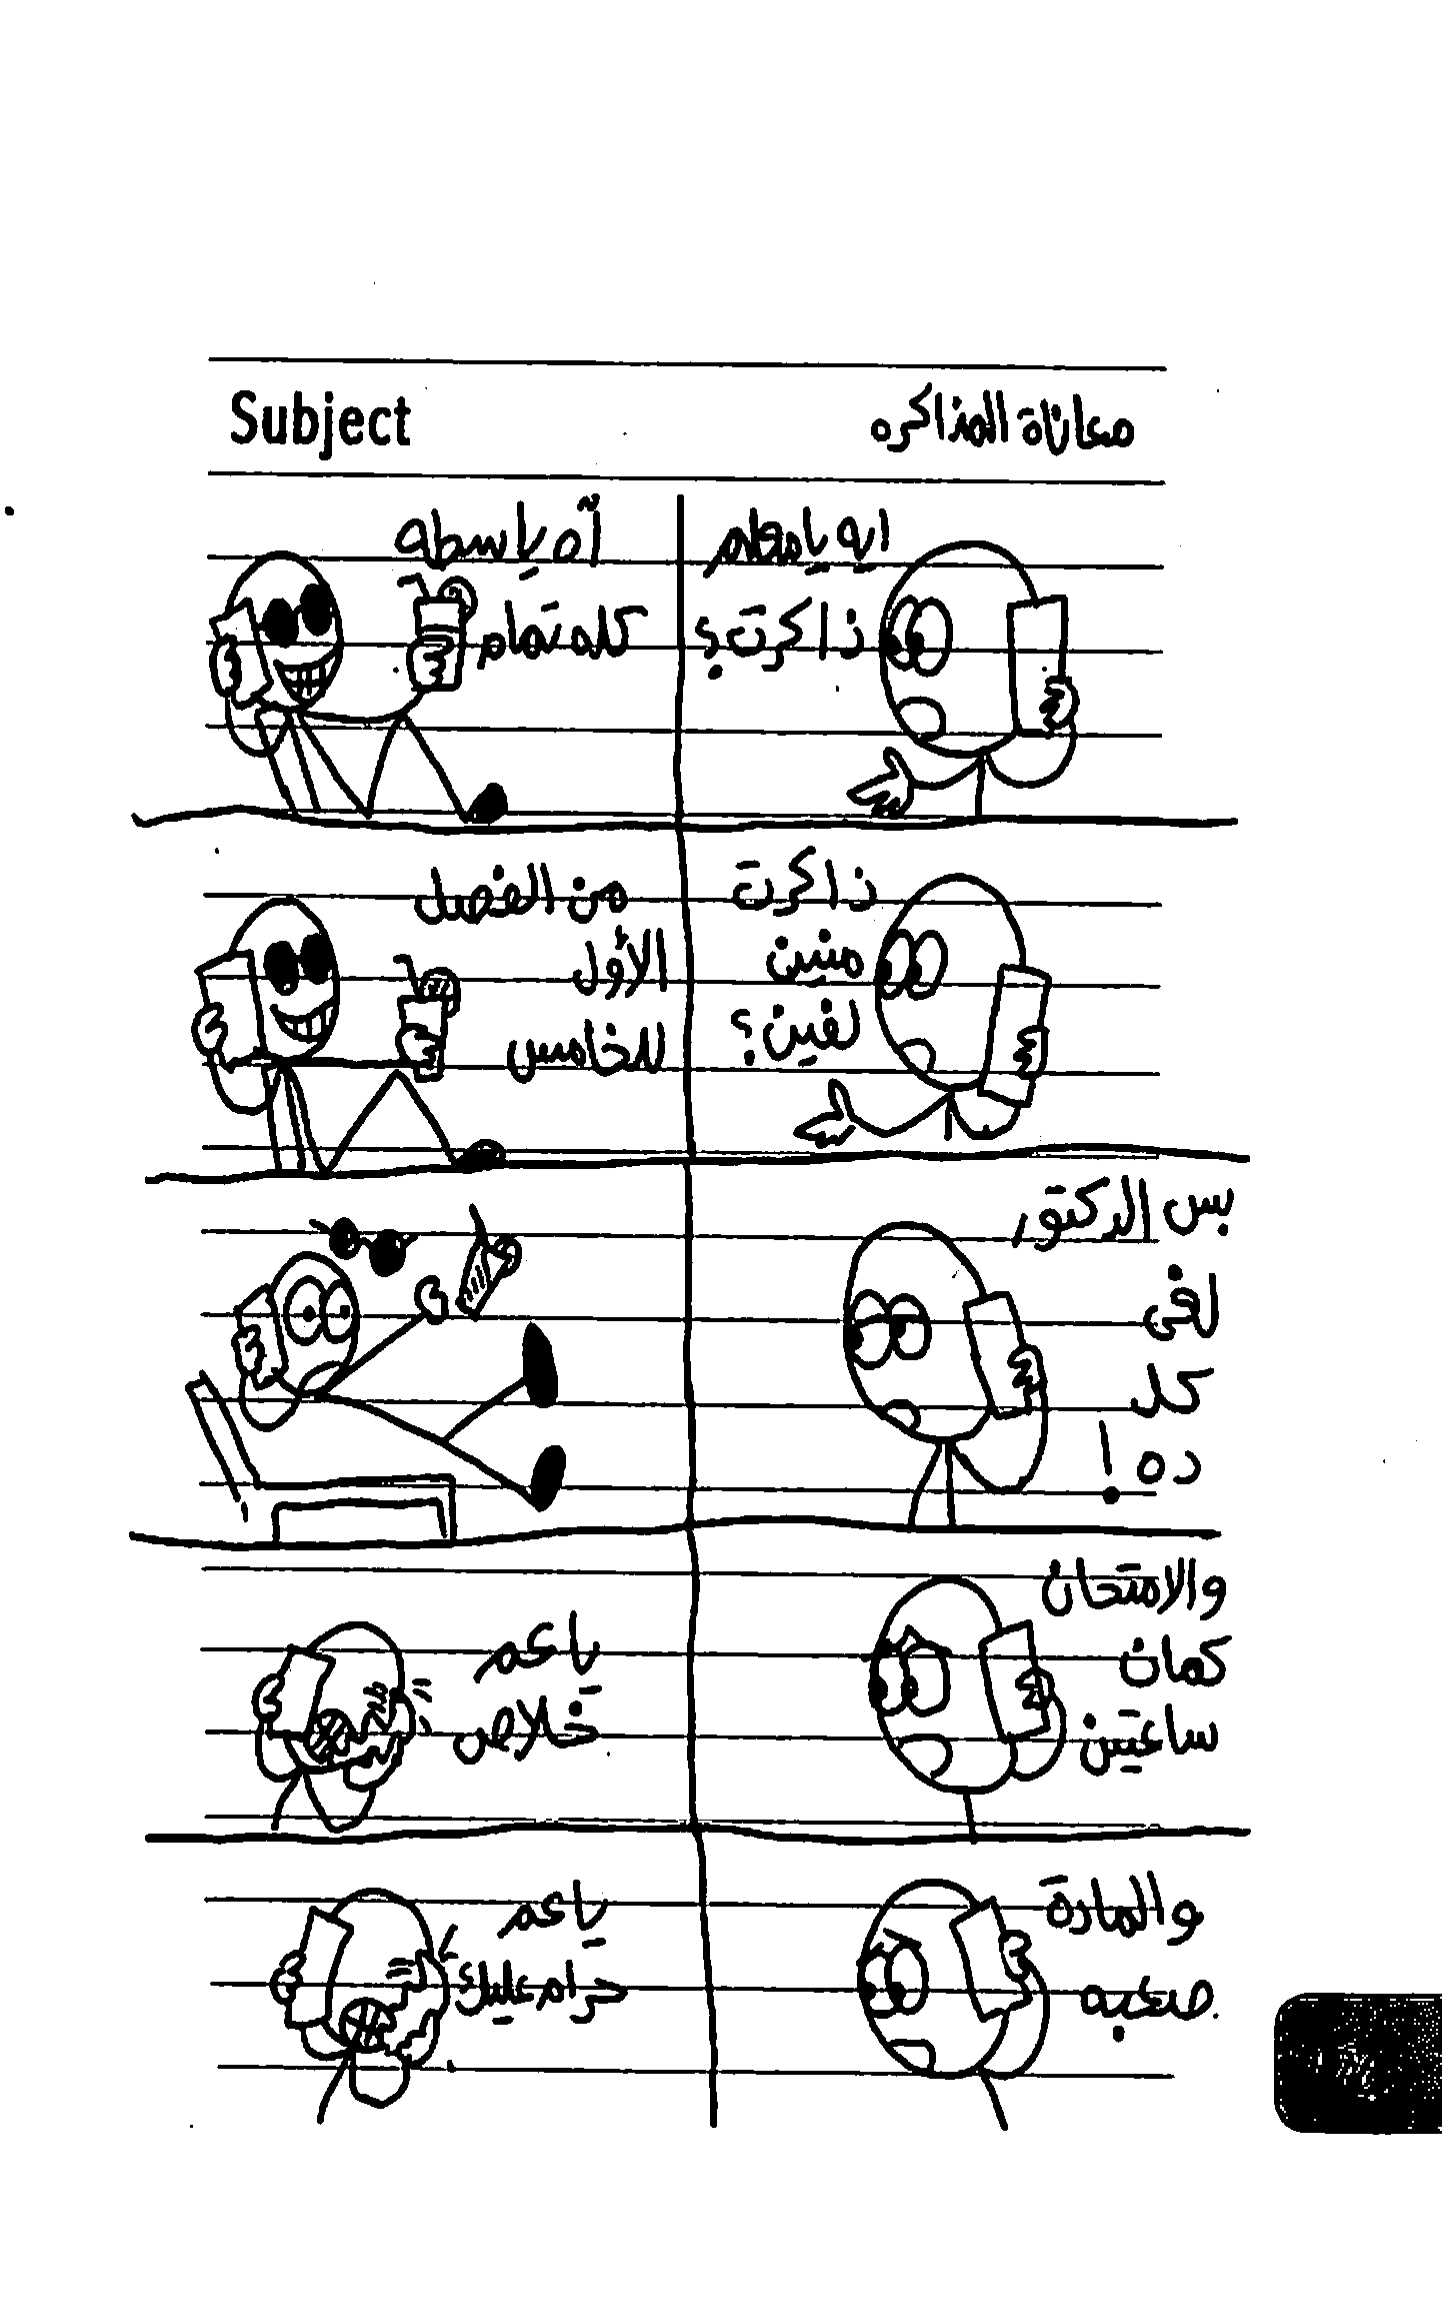 Subject
معاناة المذاكره
ايه يا معلم
ذاكرت؟
آه ياسطه
كله تمام
ذاكرت
منين
لفين؟
من الفصل
الأول
للخامس
بس الدكتور
لغى
كل
ده!
والامتحان
كمان
ساعتين
يا عم
خلاص
والمادة
صعبه
يا عم
حرام عليك